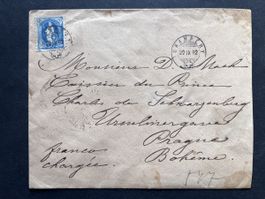 Monsieur D. Mack
Caissier du Prince
Charles de Schwarzenberg
Ursulinergasse
Prague
Bohême.
franco
chargée.